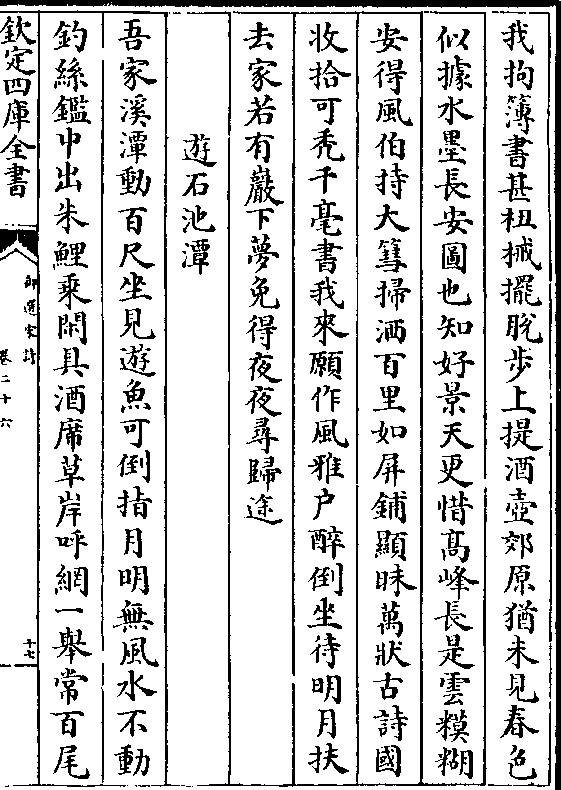 我拘簿書甚杻械擺脫步上提酒壺郊原猶未見春色
似據水墨長安圖也知好景天更惜髙峰長是雲糢糊
安得風伯持大篲掃洒百里如屏鋪顯昧萬狀古詩國
收拾可禿千毫書我來願作風雅户醉倒坐待明月扶
去家若有巖下夢免得夜夜尋歸途
遊石池潭
吾家溪潭動百尺坐見遊魚可倒指月明無風水不動
釣絲鑑中出朱鯉乘閒具酒席草岸呼網一舉常百尾
欽定四庫全書
御選宋詩
卷二十六
十七